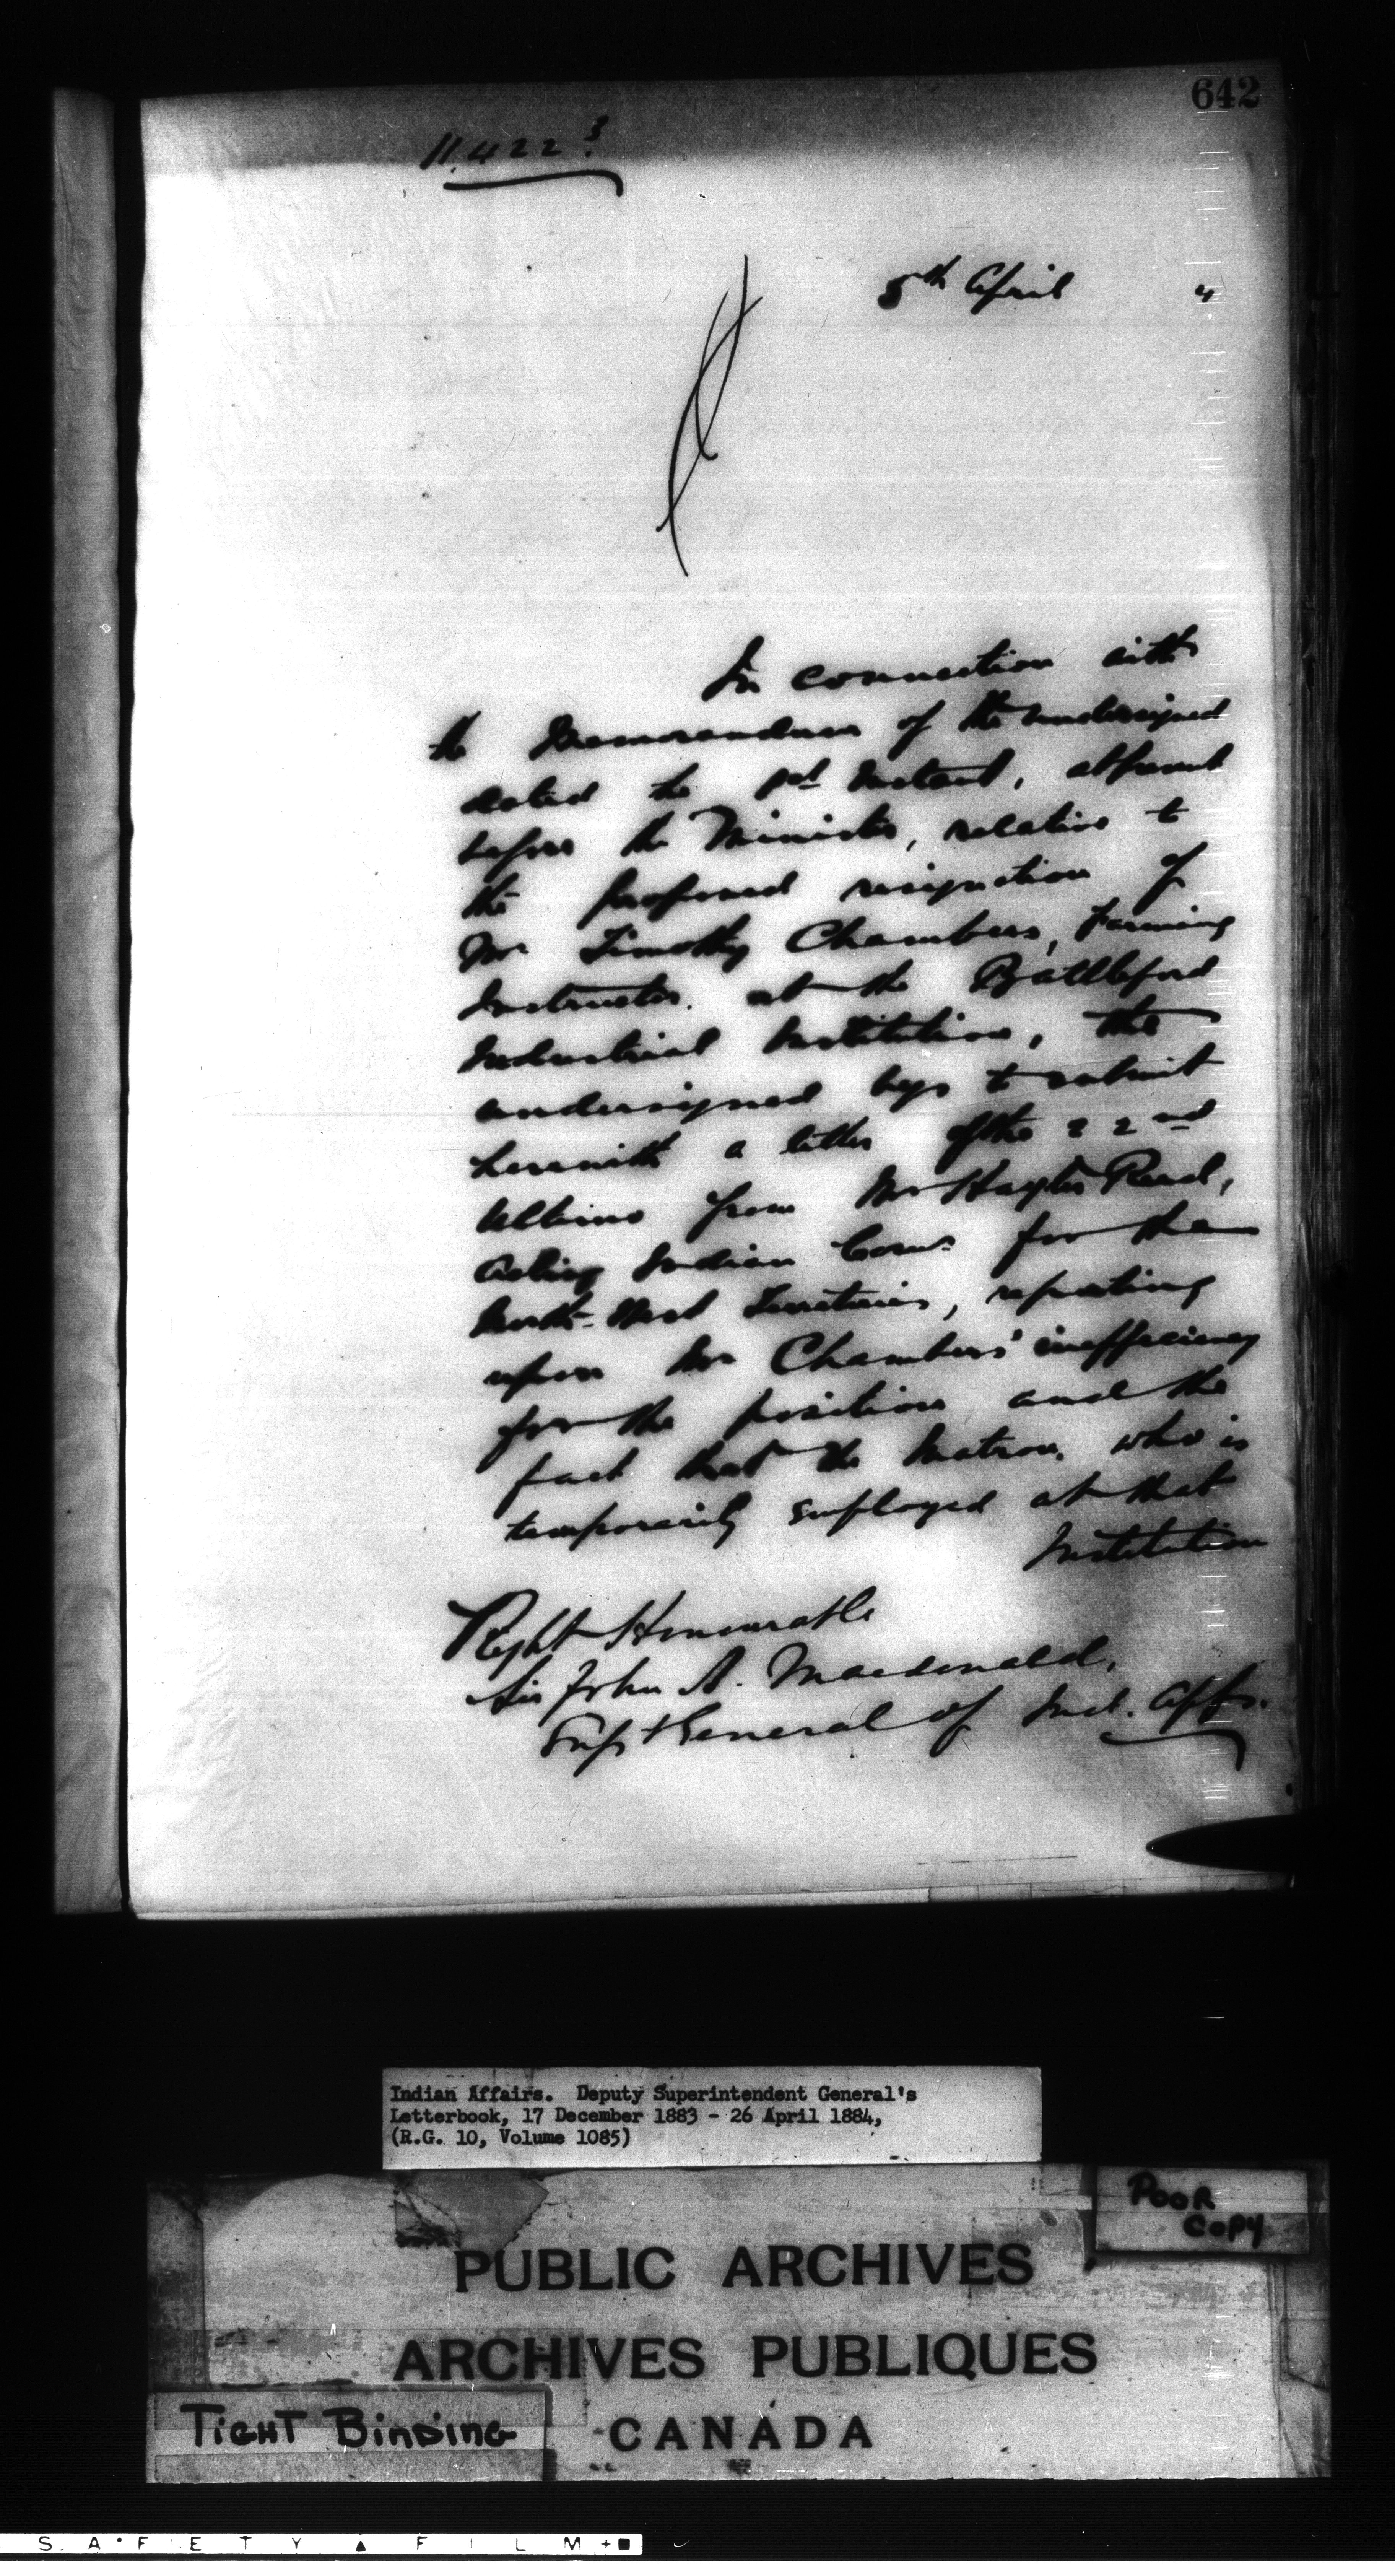 642
11.422 3
5th April 4
In connection with
the Memorandum of the undersigned
dated the Instant, at present
before the Minister, relative to
the proposed resignation of
Mr Timothy Chambers, Farming
Instructor. at the Battleford
Industrial Institution, the
undersigned begs to submit
herewith a letter of the 22nd
Ultimo from Mr Hayter Reed,
Acting Indian Comr. for the
North-West Territories, reporting
upon Mr Chambers' inefficiency
for the position and the
fact that the Matron, who is
temporarily employed at that
Institution
Right Honourable
Sir John A. Macdonald,
Supt General of Ind. Affs.
Indian Affairs. Deputy Superintendent General's
Letterbook, 17 December 1883 - 26 April 1884,
(R.G. 10, Volume 1085)
POOR
COPY
PUBLIC ARCHIVES
ARCHIVES PUBLIQUES
TIGHT BINDING
CANADA
SAFETY FILM